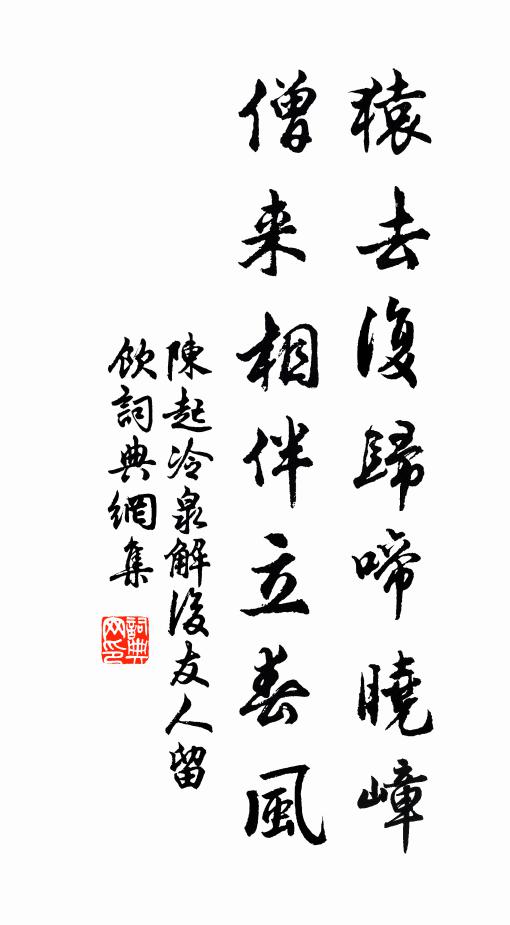 猿去復歸啼曉嶂
僧来相伴立春風
陳起冷泉解後友人留
飲詞典網集
詞典
网印